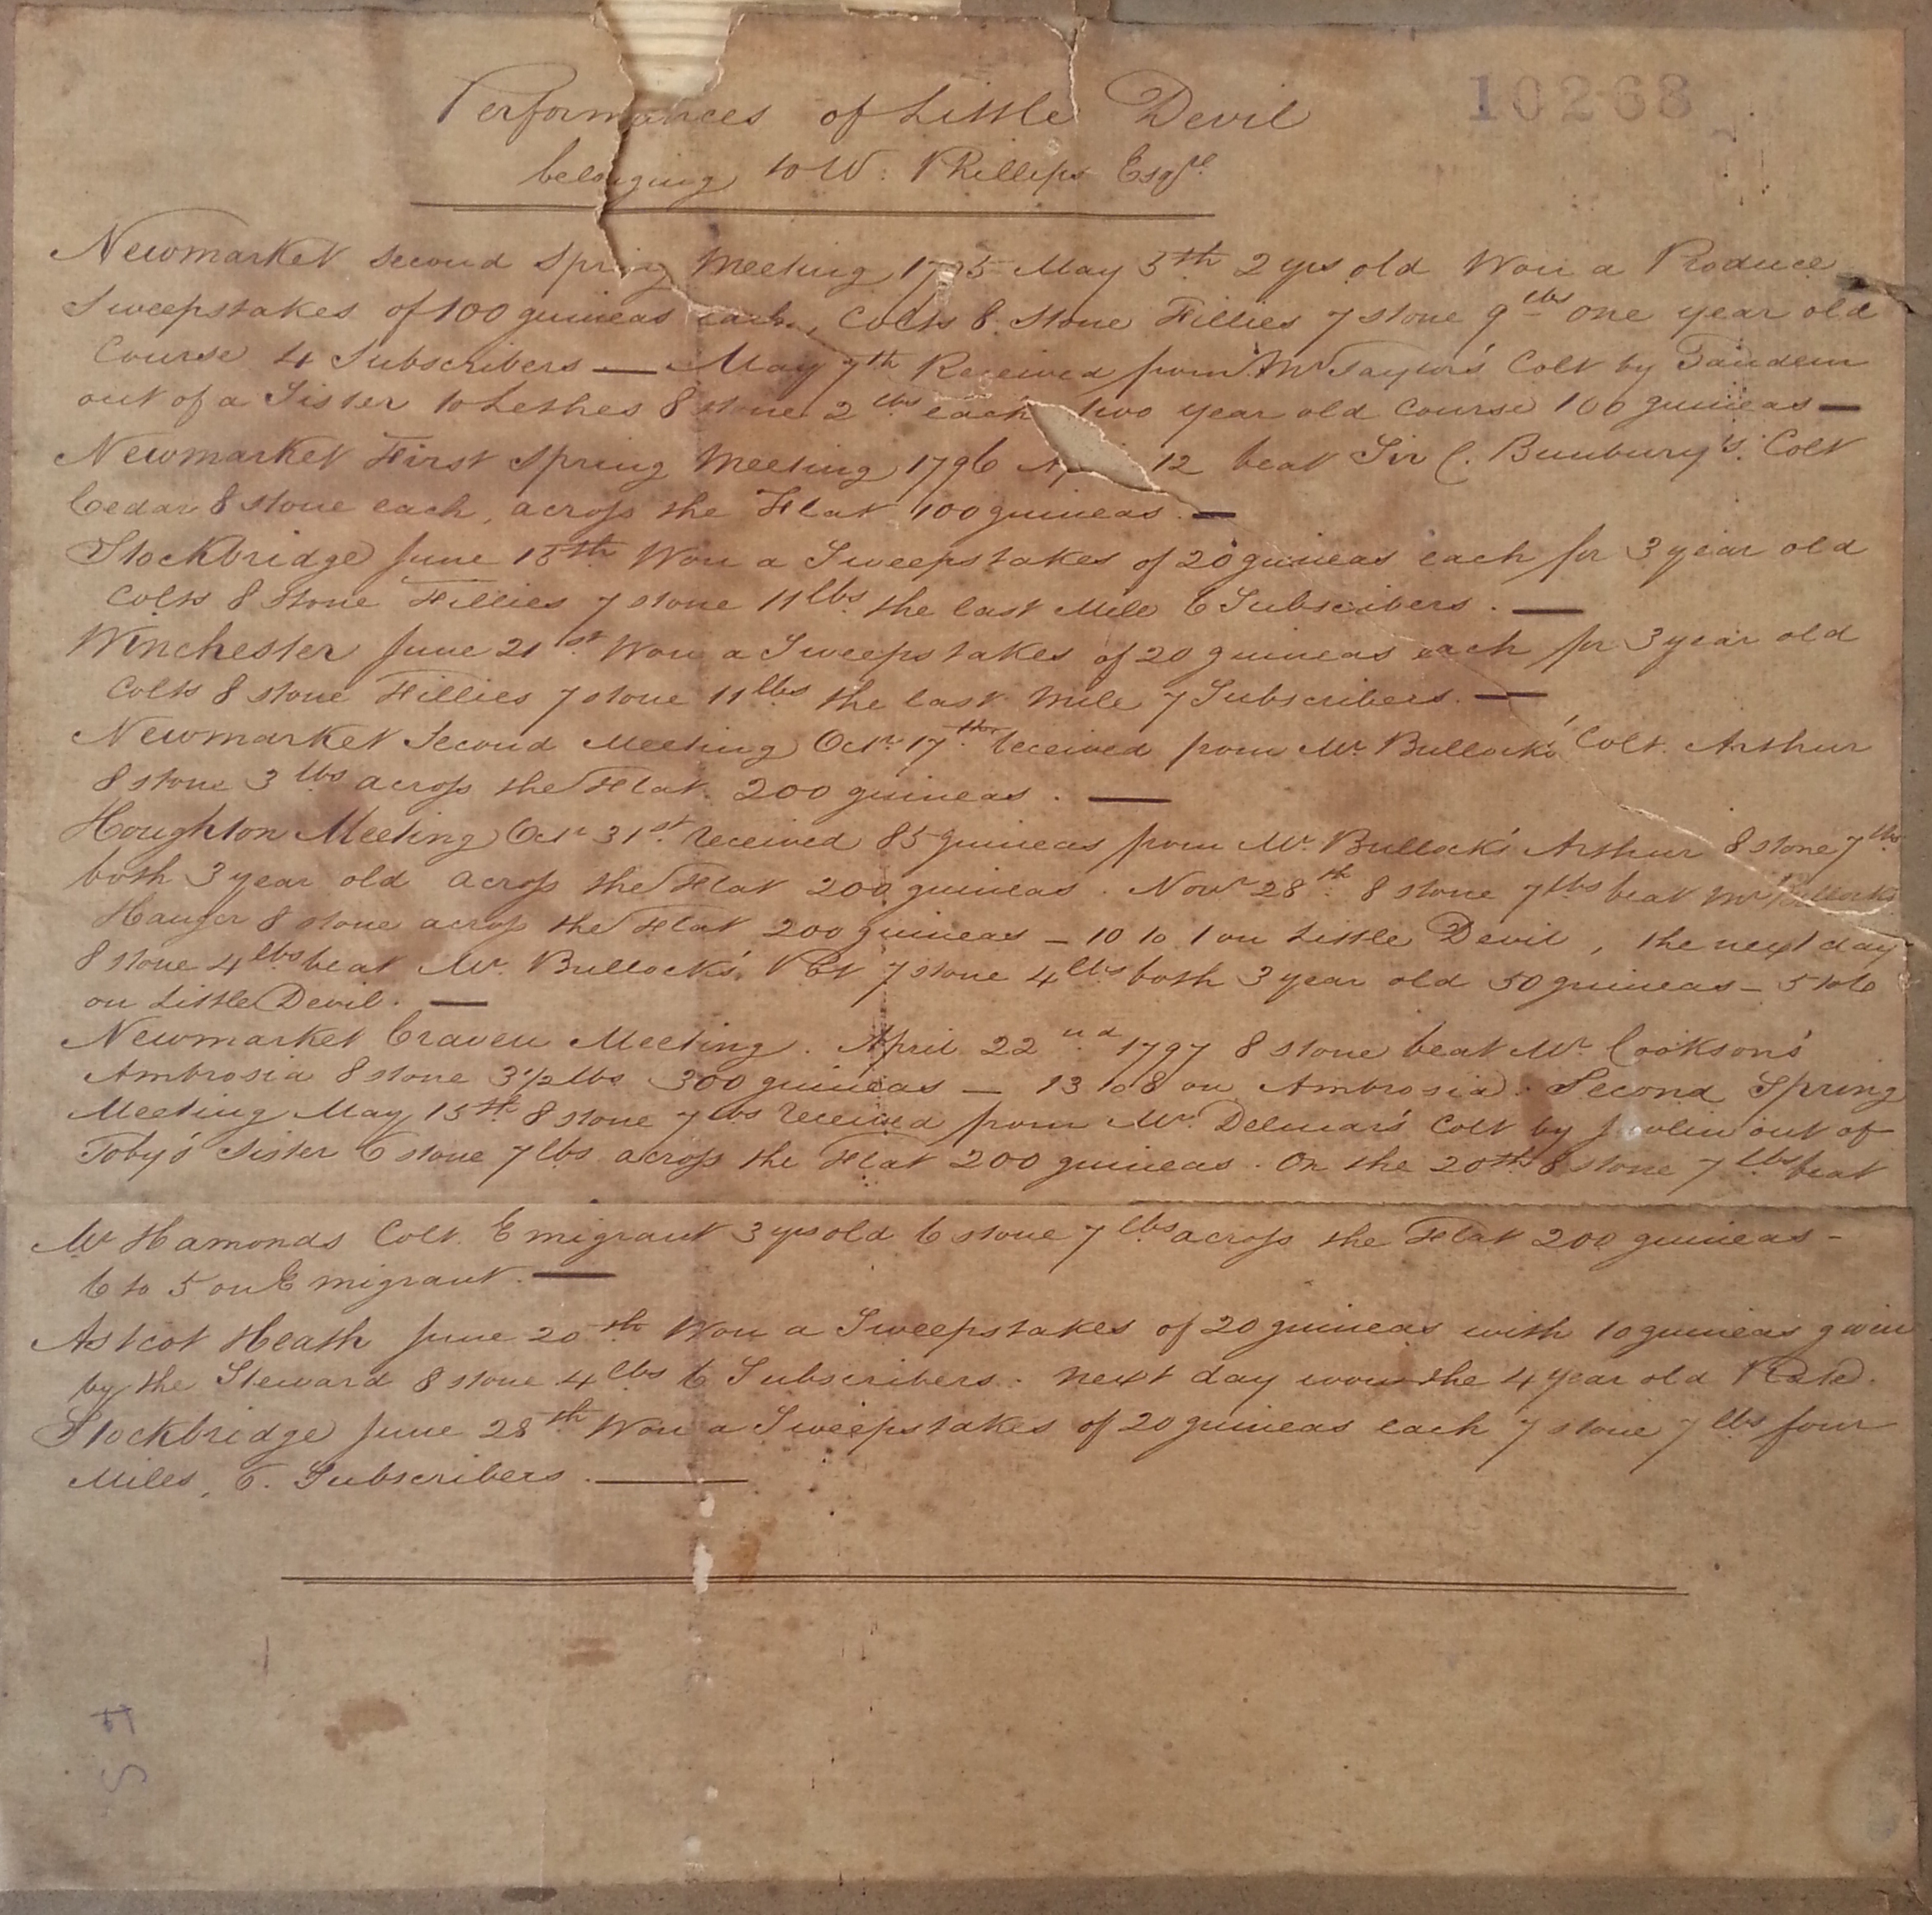 10268
Performances of Little Devil
belonging to W: Phillips Esqre.
Newmarket second Spring Meeting 1795 May 5th 2 yrs old Won a Produce
Sweepstakes of 100 guineas each, Colts 8 Stone Fillies 7 stone 9 lbs one year old
Course 4 Subscribers — May 7th Received from Mr Taylor's Colt by Tandem
out of a Sister to Lethes 8 stone 2 lbs each two year old Course 100 guineas —
Newmarket First Spring Meeting 1796 12 beat Sir C. Bunbury's Colt
Cedar 8 stone each, across the Flat 100 guineas. —
Stockbridge June 15th Won a Sweepstakes of 20 guineas each for 3 year old
Colts 8 stone Fillies 7 stone 11 lbs. the last Mile 6 Subscibers. —
Winchester June 21st Won a Sweepstakes of 20 guineas each for 3 year old
Colts 8 stone Fillies 7 stone 11 lbs the last Mile 7 Subscribers. —
Newmarket Second Meeting Octr. 17th received from Mr. Bullock's Colt. Arthur
8 stone 3 lbs across the Flat. 200 guineas. —
Houghton Meeting Octr 31st. received 85 guineas from Mr. Bullock's Arthur 8 stone 7 lbs
both 3 year old across the Flat 200 guineas. Novr 28th. 8 stone 7 lbs beat Mr Bullock's
8 stone across the Flat 200 guineas – 10 to 1 on Little Devil, the next day
8 stone 4 lbs beat Mr. Bullock's, Pet 7 stone 4 lbs both 3 year old 50 guineas – 5 to
on Little Devil. —
Newmarket Craven Meeting. April 22nd 1797 8 stone beat Mr. Cookson's
Ambrosia 8 stone 3½ lbs 300 guineas – 13 to 8 on Ambrosia. Second Spring
Meeting May 15th 8 stone 7 lbs received from Mr. Delmar's Colt by out of
Toby's Sister 6 stone 7 lbs across the Flat 200 guineas. On the 20th 8 stone 7 lbs beat
Mr Hamonds Colt. Emigrant 3 yrs old 6 stone 7 lbs across the Flat 200 guineas –
6 to 5 on Emigrant. —
Astcot Heath June 20th Won a Sweepstakes of 20 guineas with 10 guineas given
by the Steward 8 stone 4 lbs 6 Subscribers. Next day won the 4 year old Plate.
Stockbridge June 28th Won a Sweepstakes of 20 guineas each 7 stone 7 lbs four
Miles, 6. Subscribers. —